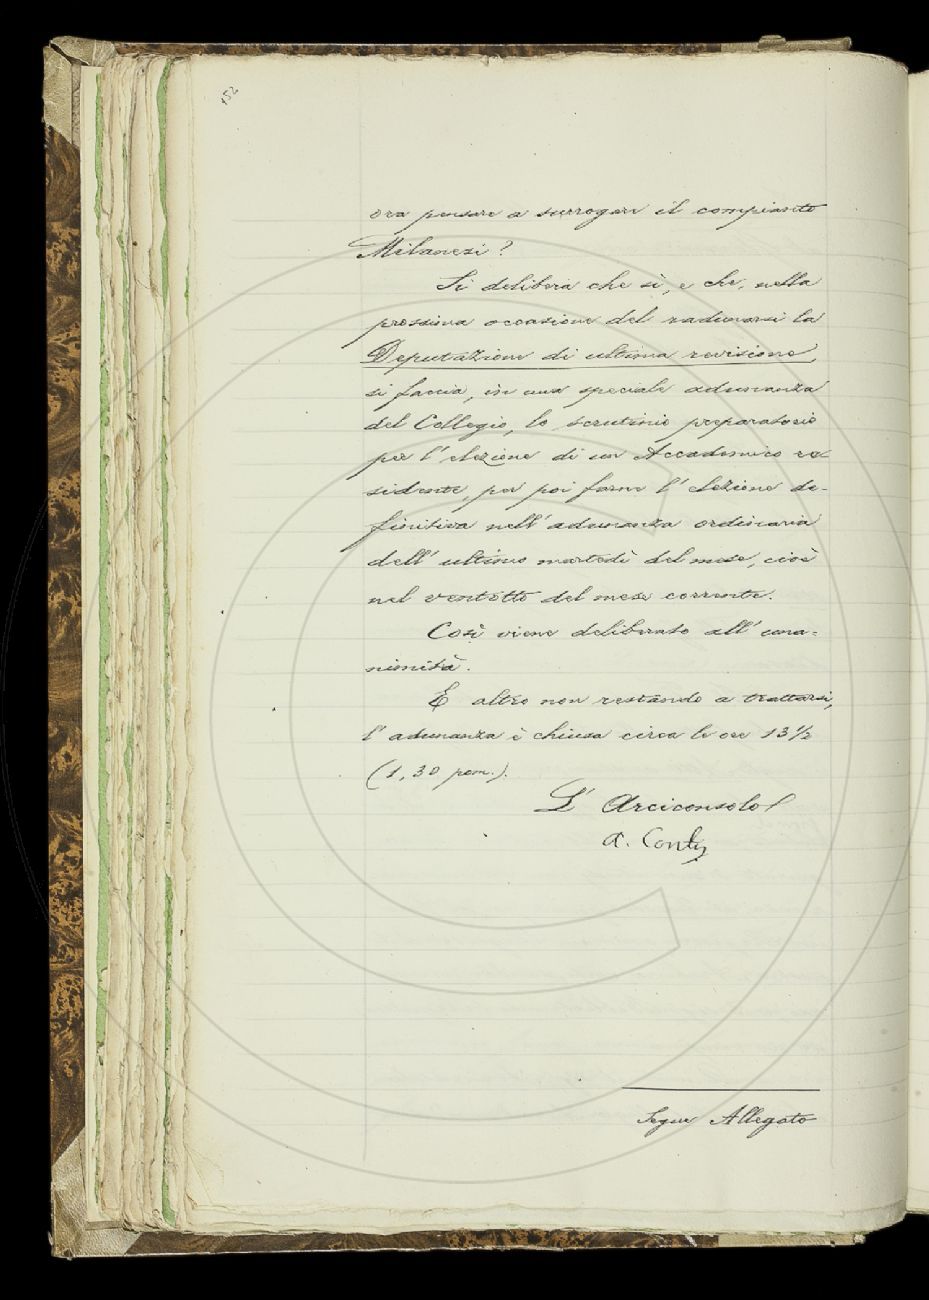 152
ora pensare a surrogare il compianto
Milanesi?
Si delibera che sì, e che, nella
prossima occasione del radunarsi la
Deputazione di ultima revisione,
si faccia, in una speciale adunanza
del Collegio, lo scrutinio preparatorio
per l'elezione di un Accademico re-
sidente, per poi farne l'elezione de-
finitiva nell'adunanza ordinaria
dell'ultimo martedì del mese, cioè
nel ventotto del mese corrente.
Così viene deliberato all'una-
nimità.
E altro non restando a trattarsi,
l'adunanza è chiusa circa le ore 13 1/2
(1,30 pom.).
L'Arciconsolo
A. Conti
Segue Allegato